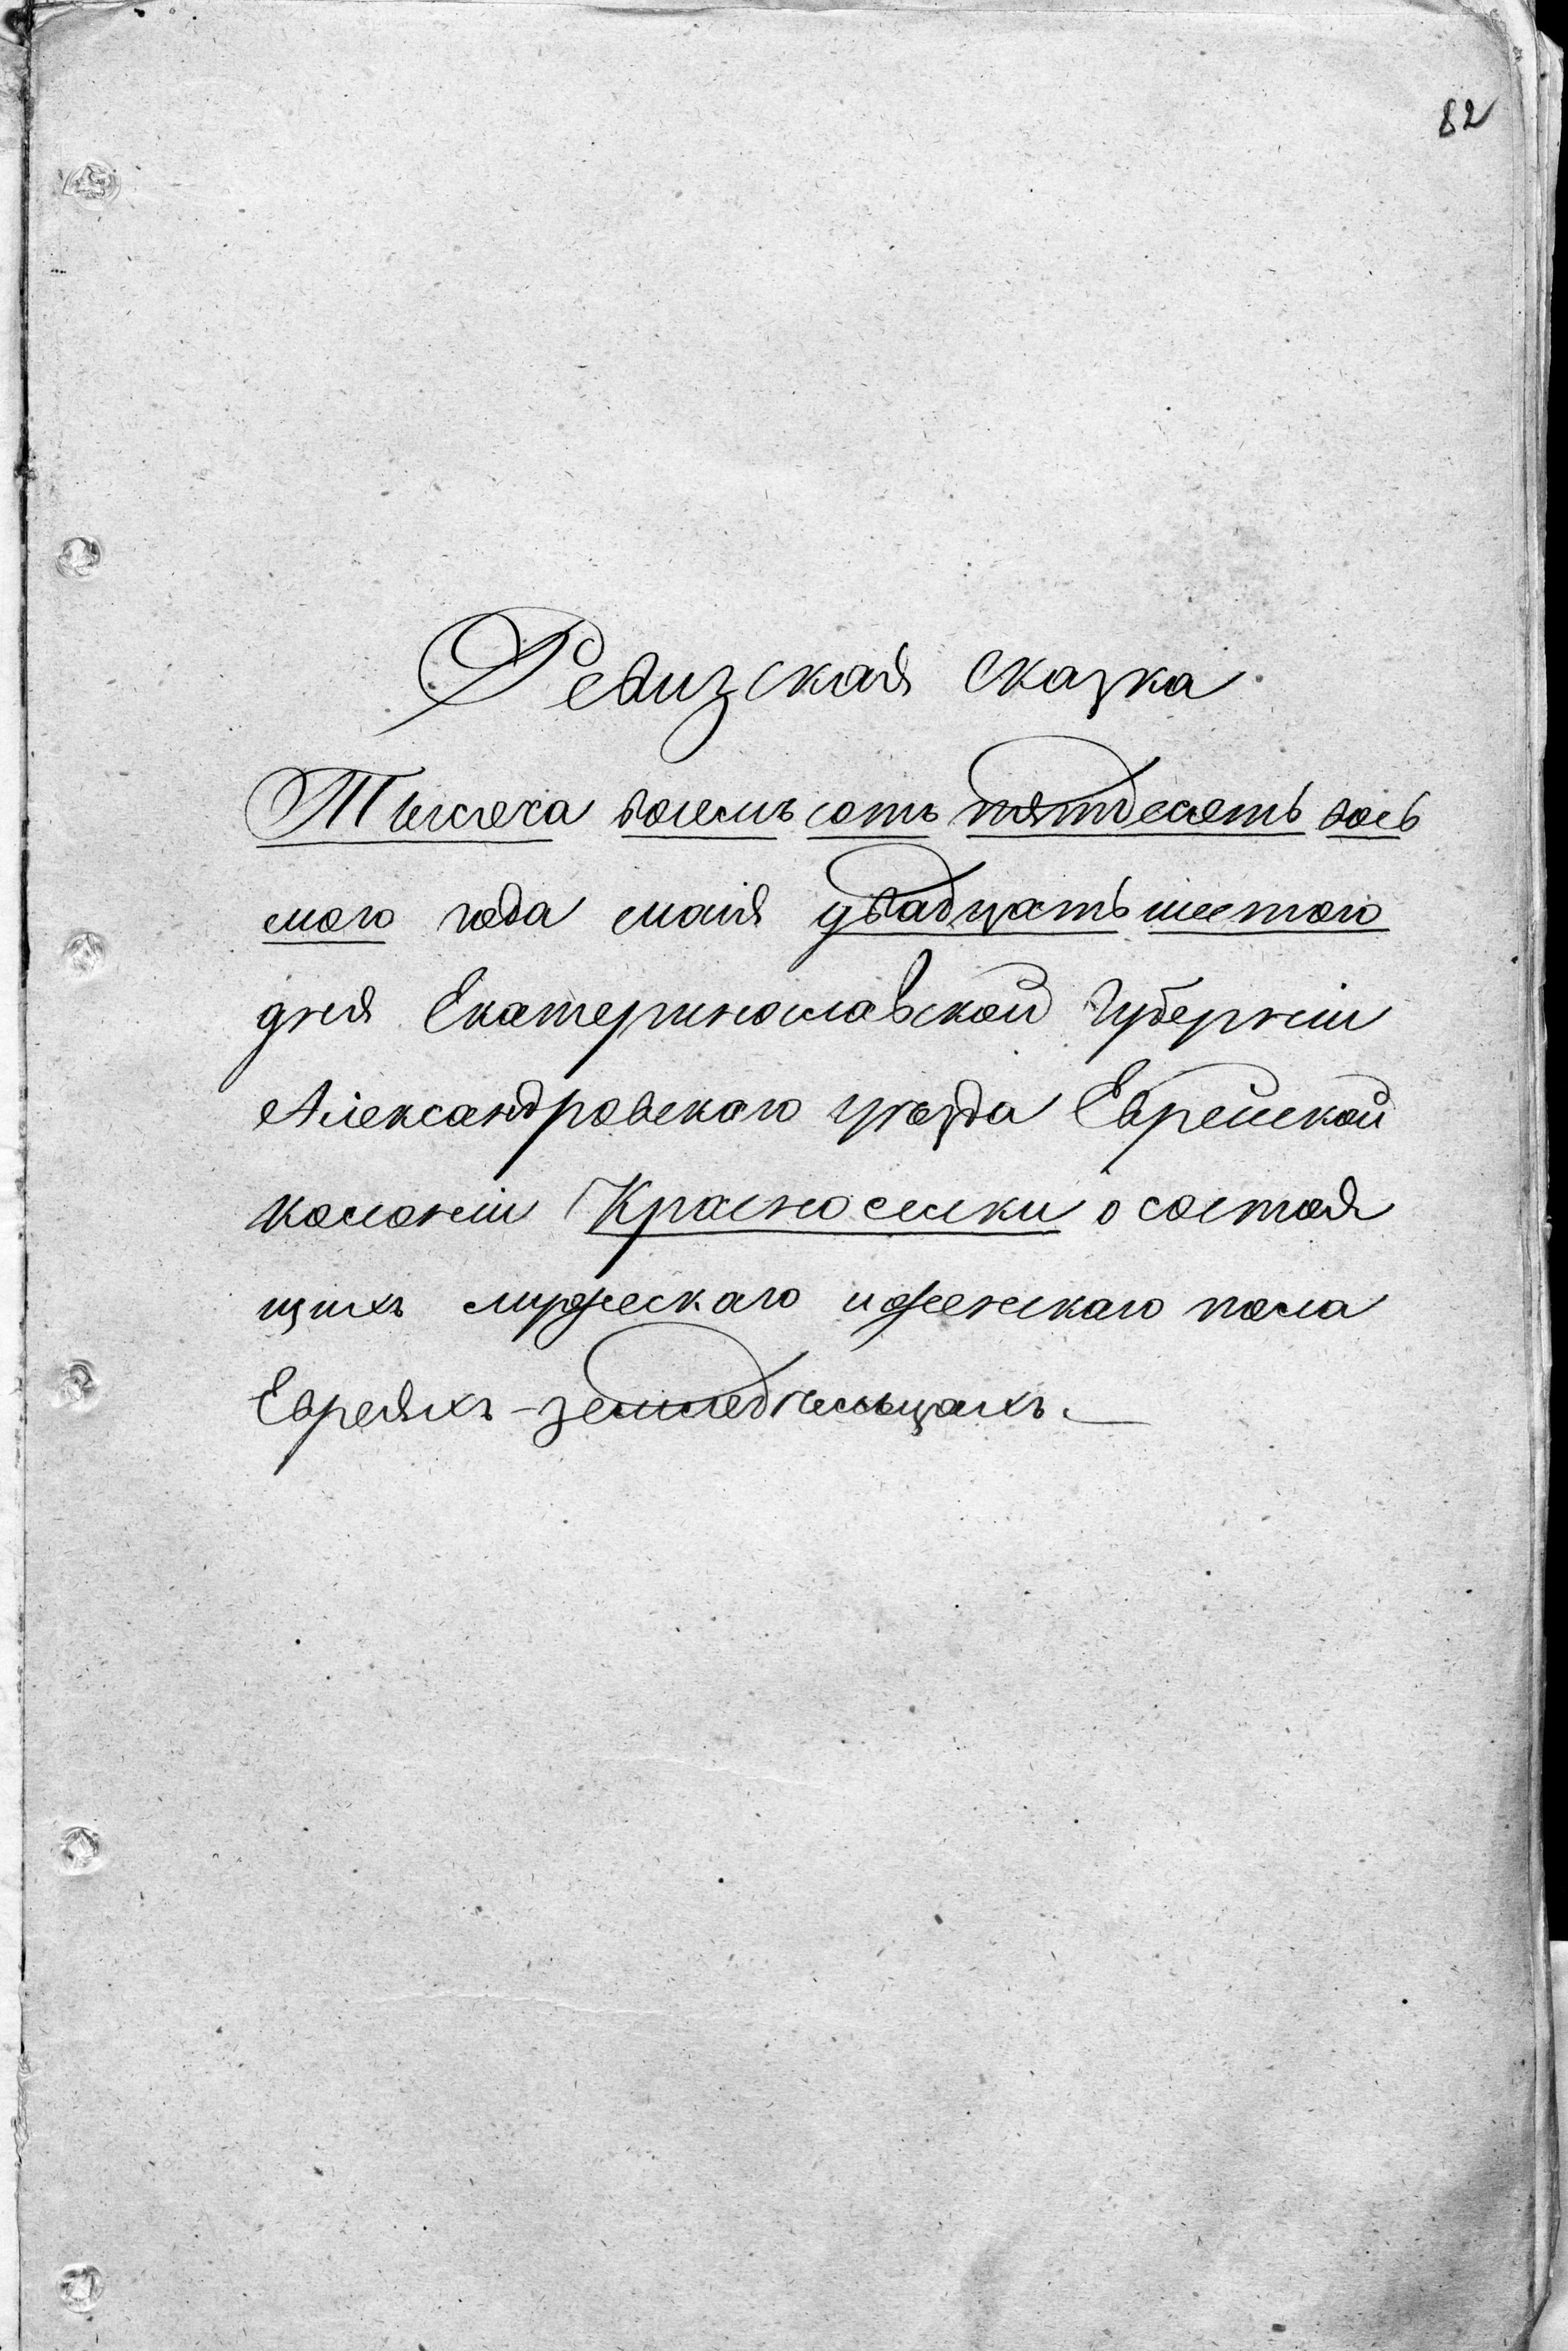 82
Ревизская сказка
Тысяча восемь сотъ пятьдесятъ вось
мого года маія двадцать шестого
дня Екатеринославской Губерніи
Александровскаго уѣзда Еврейской
колоніи Красноселки о состоя
щихъ мужескаго и женскаго пола
Евреяхъ-земледѣльцахъ.